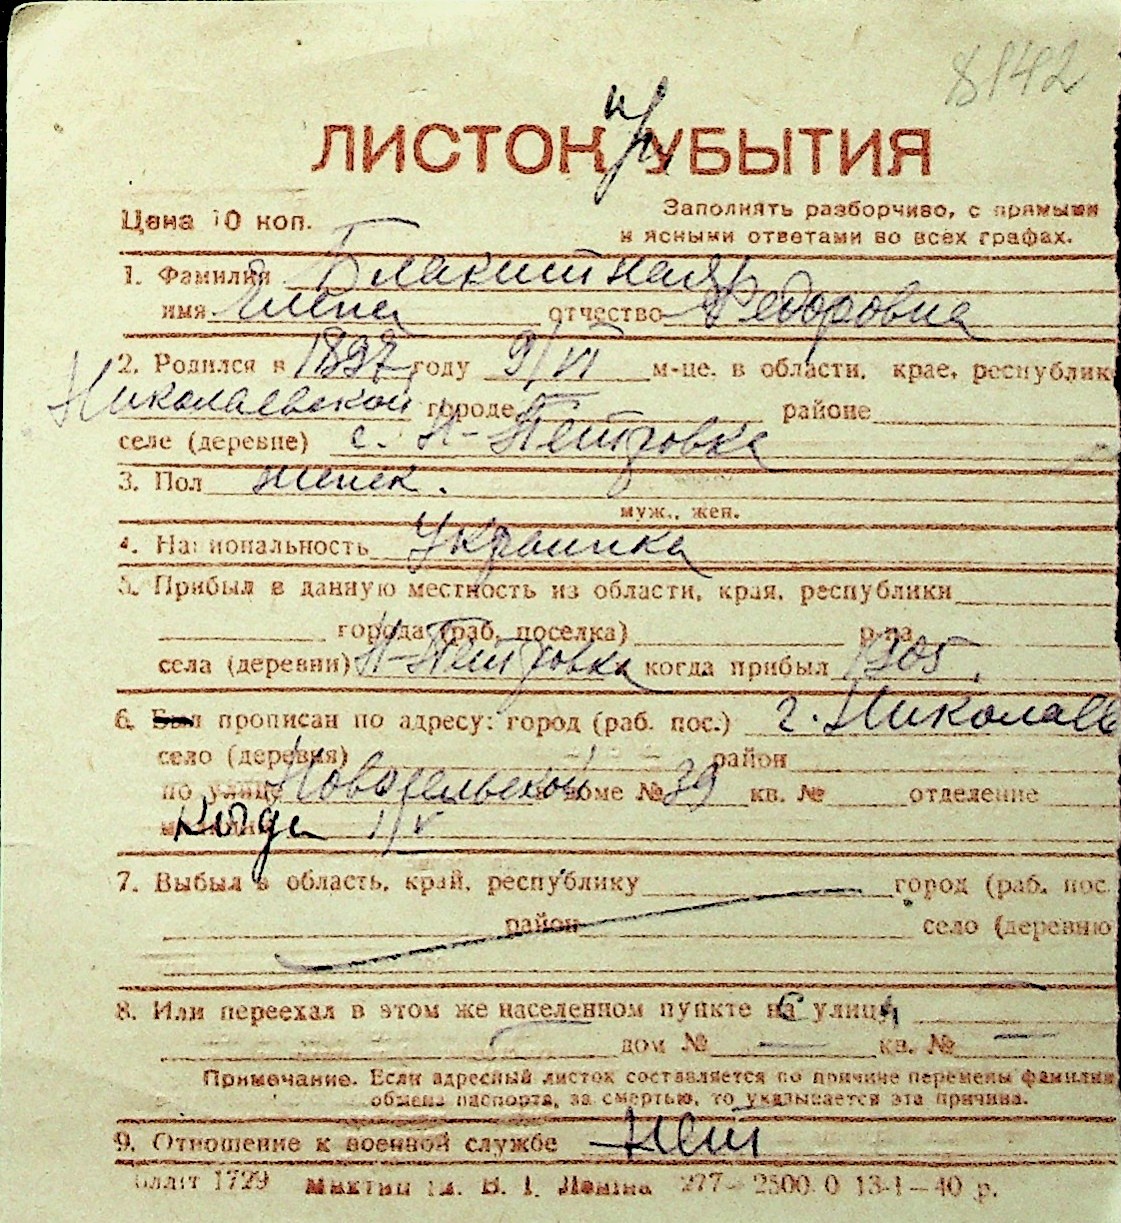 8142
ЛИСТОК при УБЫТИЯ
Цена 10 коп.
Заполнять разборчиво, с прямыми
и ясными ответами во всех графах.
1. Фамилия Блакитная
имя Елена отчество Федоровна
2. Родился в 1897 году 9/VI м-це, в области, крае, республик
Николаевской городе районе
селе (деревне) с. Н-Петровка
3. Пол женск.
муж., жен.
4. Национальность Украинка
5. Прибыл в данную местность из области, края, республики
города (раб. поселка) р-на
села (деревни) Н-Петровка когда прибыл 1905.
6. Был прописан по адресу: город (раб. пос.) г. Николаев
село (деревня) район
по улице Новосельской доме № 39 кв. № отделение
7. Выбыл в область, край, республику город (раб. пос.
район село (деревню
8. Или переехал в этом же населенном пункте на с улицы
дом № — кв. № —
Примечание. Если адресный листок составляется по причине перемены фамилии
обмена паспорта, за смертью, то указывается эта причина.
9. Отношение к военной службе Нет
1729 В. І. Леніна 277—2500.0 13-1—40 р.